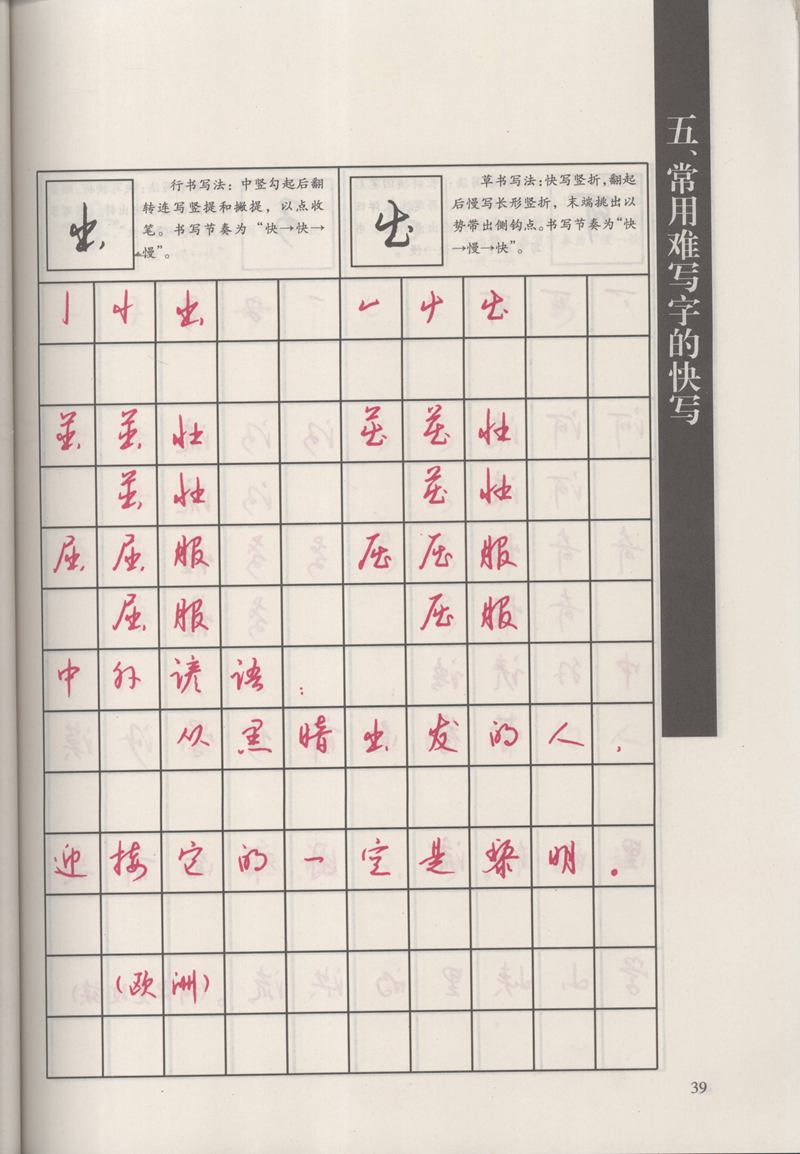 五、常用难写字的快写
出
行书写法：中竖勾起后翻
转连写竖提和撇提，以点收
笔。书写节奏为“快→快→
慢”。
出
草书写法：快写竖折，翻起
后慢写长形竖折，末端挑出以
势带出侧钩点。书写节奏为“快
→慢→快”。
出 出
茁 茁 壮 茁 茁 壮
茁 壮 茁 壮
屈 屈 服 屈 屈 服
屈 服 屈 服
中外谚语：
从黑暗出发的人，
迎接它的一定是黎明。
（欧洲）
39